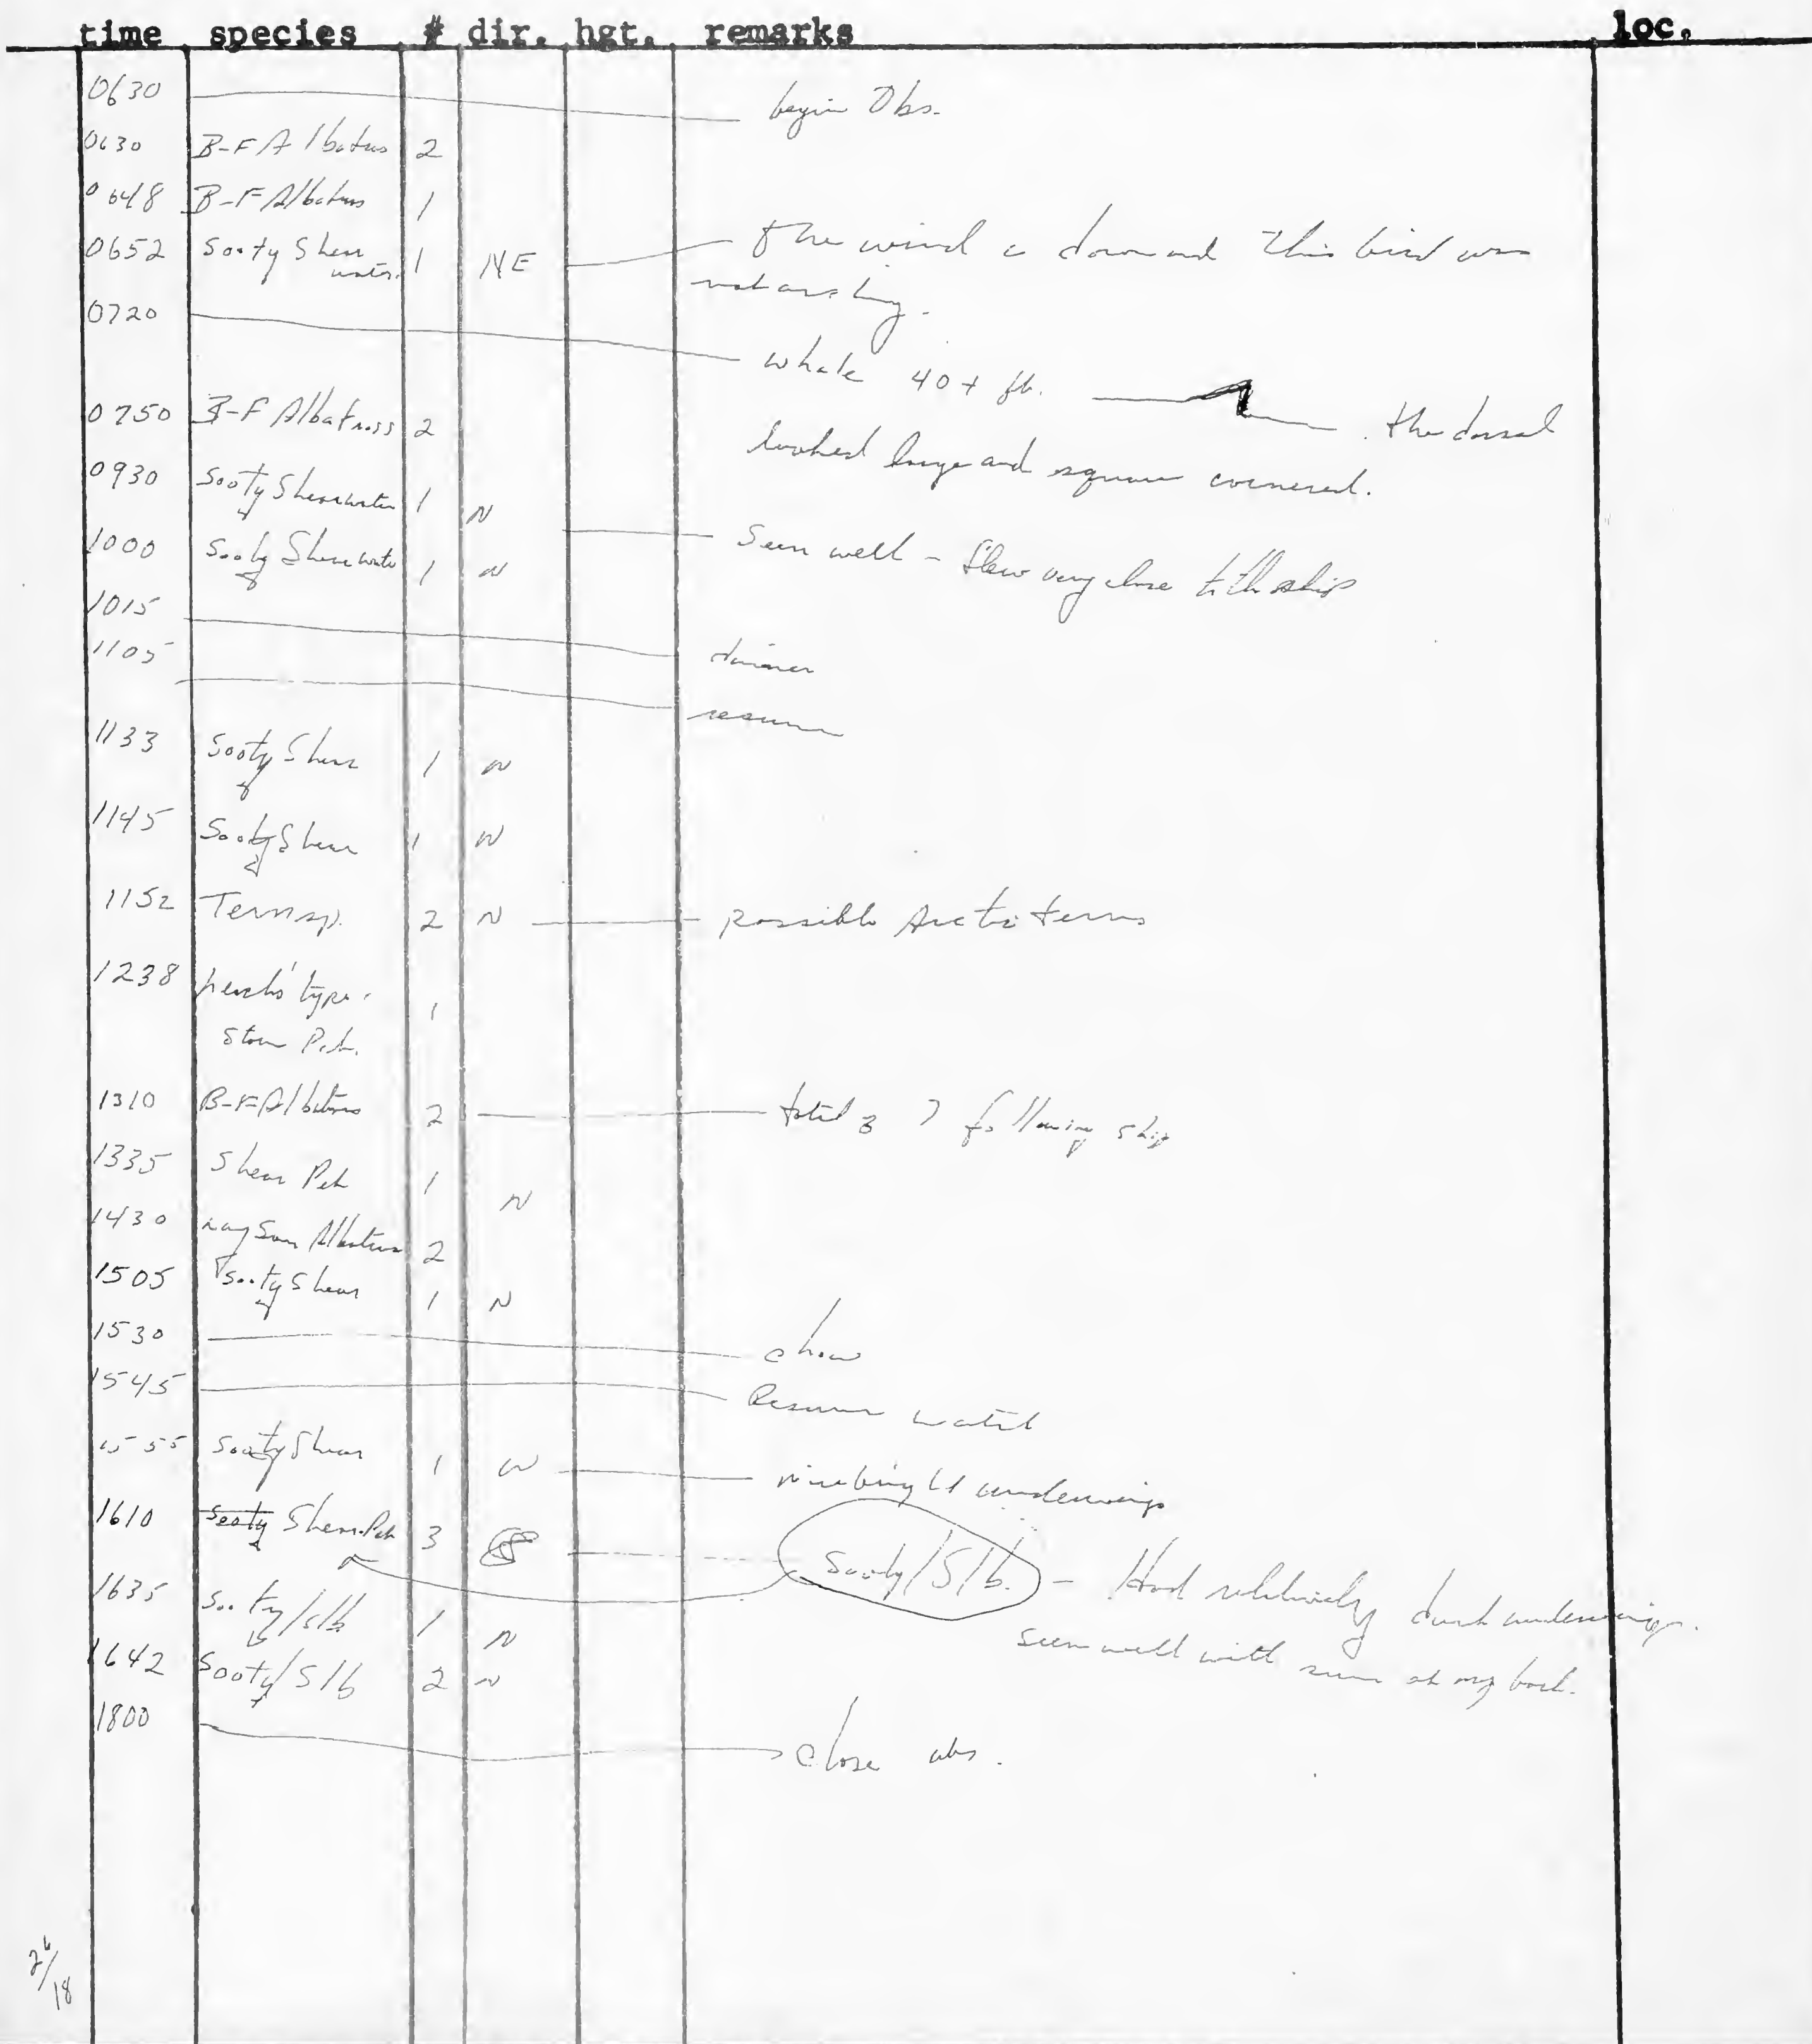 time species # dir. hgt. remarks loc.
0630 begin Obs.
0630 B-F Albatross 2
0648 B-F Albatross 1
0652 Sooty Shear water. 1 NE The wind is down and this bird was
not arcing.
0720 whale 40+ ft. the dorsal
looked large and square cornered.
0750 B-F Albatross 2
0930 Sooty Shearwater 1 N
1000 Sooty Shearwater 1 N Seen well - flew very close to the ship
1015 dinner
1105 resume
1133 Sooty Shear 1 N
1145 Sooty Shear 1 N
1152 Tern sp. 2 N possible Arctic terns
1238 Leach's type
Storm Pet. 1
1310 B-F Albatross 2 total 3 ? following ship
1335 Shear Pet 1 N
1430 Laysan Albatross 2
1505 Sooty Shear 1 N
1530 chow
1545 Resume watch
1555 Sooty Shear 1 N underwings
1610 Sooty Shear.Pet 3 Sooty/Slb. - Had relatively dark underwings.
seen well with sun at my back.
1635 Sooty/Slb 1 N
1642 Sooty/Slb 2 N
1800 close obs.
26/18